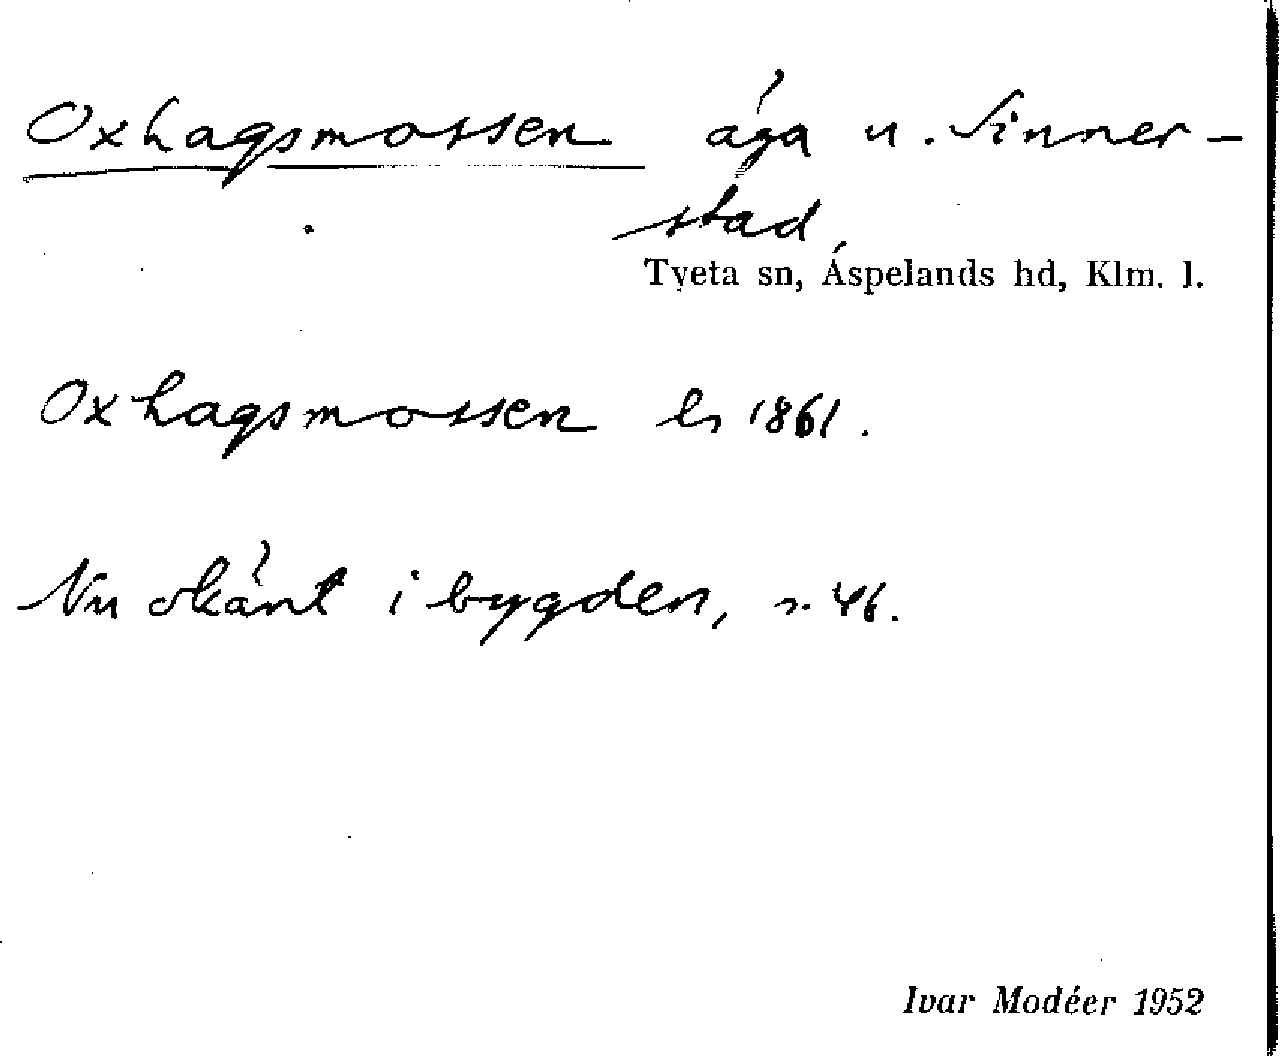 Oxhagsmossen äga u. Sinner-
stad
Tveta sn, Åspelands hd, Klm. l.
Oxhagsmossen ls 1861.
Nu okänt i bygden, s. 46.
Ivar Modéer 1952